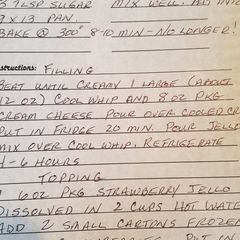 3 TLSP SUGAR MIX WELL. PUT INT
9 X 13 PAN.
BAKE @ 300° 8-10 MIN - NO LONGER!
structions: FILLING
BEAT UNTIL CREAMY 1 LARGE (ABOUT
12 OZ) COOL WHIP AND 8 OZ PKG
CREAM CHEESE POUR OVER COOLED CR
PUT IN FRIDGE 20 MIN. POUR JELLO
MIX OVER COOL WHIP. REFRIGERATE
4-6 HOURS
TOPPING
1 6 OZ PKG STRAWBERRY JELLO
DISSOLVED IN 2 CUPS HOT WATE
ADD 2 SMALL CARTONS FROZEN
PUT IN